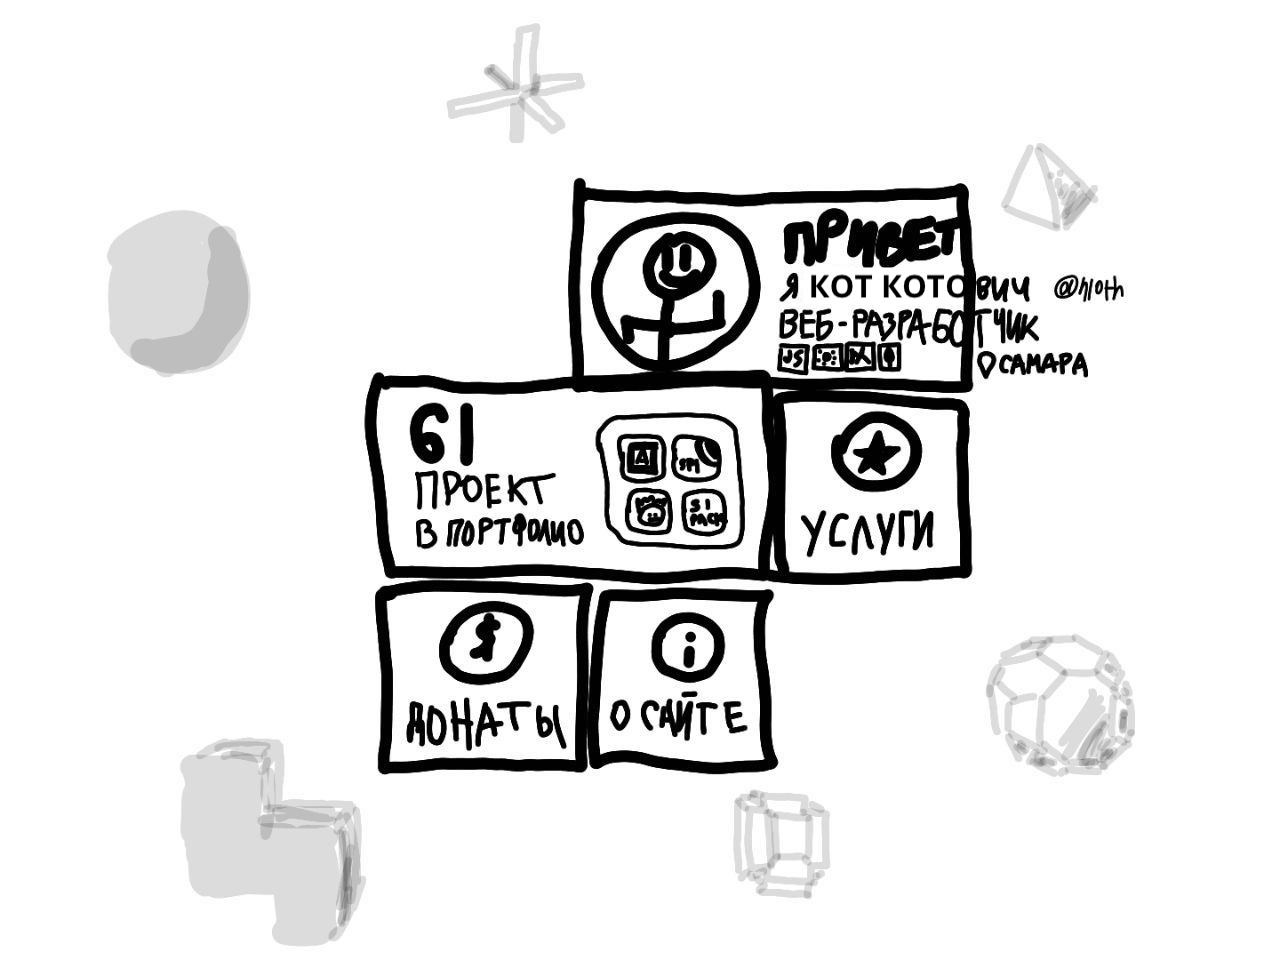 ПРИВЕТ
Я КОТ КОТОВИЧ @h1oth
ВЕБ-РАЗРАБОТЧИК
JS
САМАРА
61
ПРОЕКТ
В ПОРТФОЛИО
A
SI
PACK
УСЛУГИ
$
i
ДОНАТЫ
О САЙТЕ